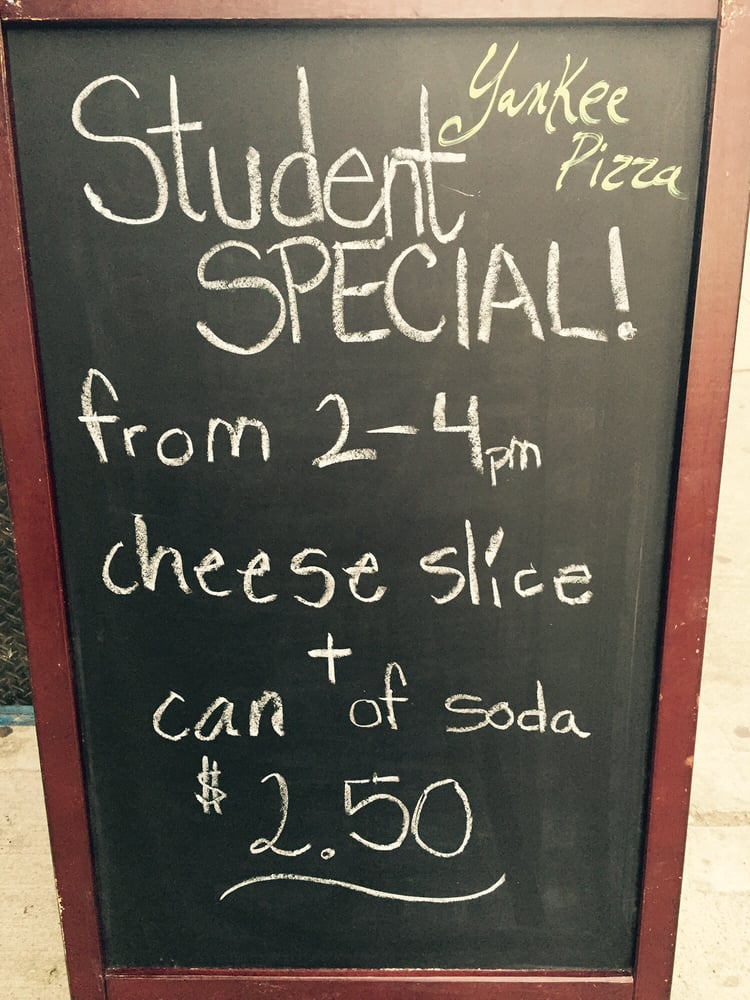 Yankee
Pizza
Student
SPECIAL!
from 2-4pm
cheese slice
+
can of soda
$2.50